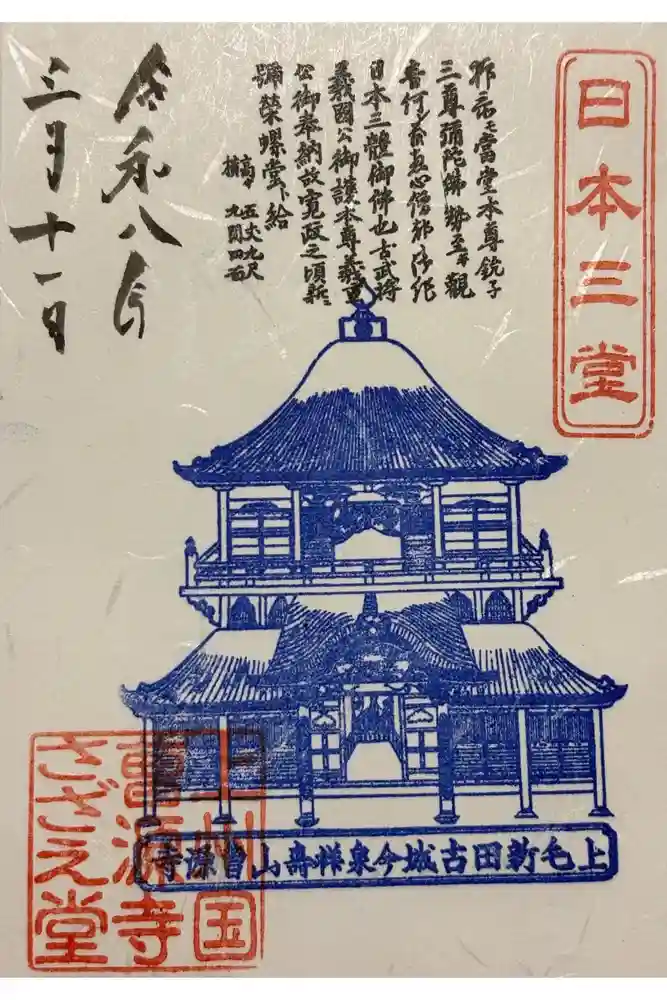 日本三堂
抑々當堂本尊銚子
三尊彌陀佛勢至觀
音行
日本三體御佛也古武將
義國公御護本尊義重
公御奉納故寛政之頃新
彌榮螺堂下給
高サ 五丈九尺
横 九間四石
令和八年
三月十一日
上毛新田古城今泉祥壽山曹源寺
上州国
曹源寺
さざえ堂